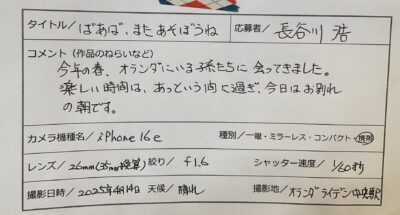 タイトル/ ばあば、またあそぼうね 応募者/ 長谷川 浩
コメント(作品のねらいなど)
今年の春、オランダにいる孫たちに会ってきました。
楽しい時間は、あっという間に過ぎ、今日はお別れ
の朝です。
カメラ機種名/ iPhone 16e 種別/一眼・ミラーレス・コンパクト・携帯
レンズ/ 26mm(35mm換算) 絞り/ f1.6 シャッター速度/ 1/60秒
撮影日時/ 2025年4月14日 天候/ 晴れ 撮影地/ オランダ ライデン中央駅